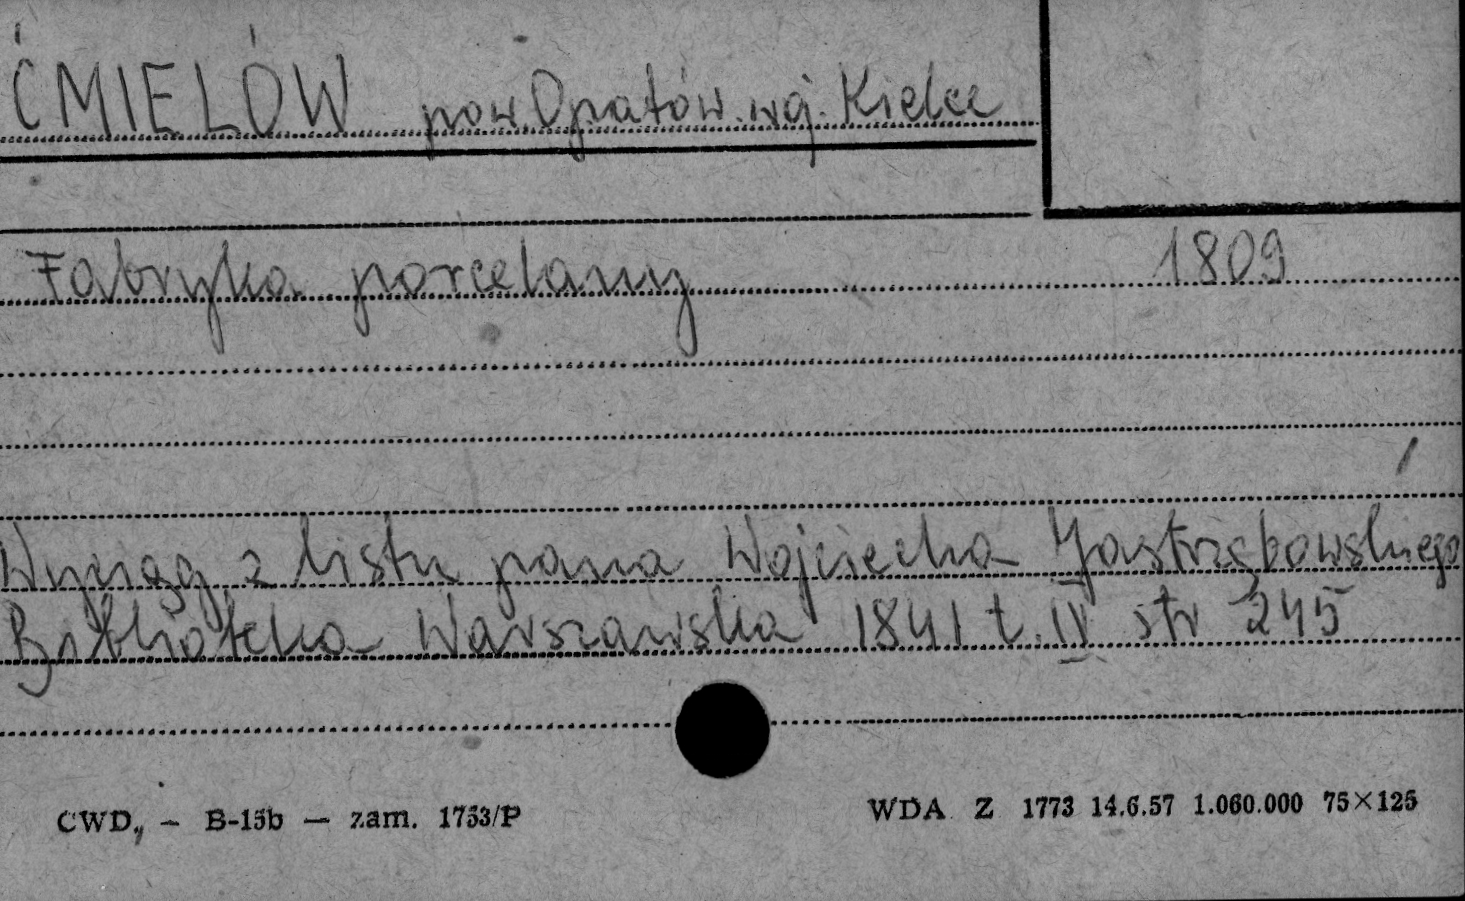 ĆMIELÓW pow. Opatów. woj. Kielce
Fabryka porcelany 1809
Wyciąg z listu pana Wojciecha Jastrzębowskiego
Biblioteka Warszawska 1841 t. IV str 245
CWD, – B-15b – zam. 1753/P WDA Z 1773 14.6.57 1.060.000 75×125